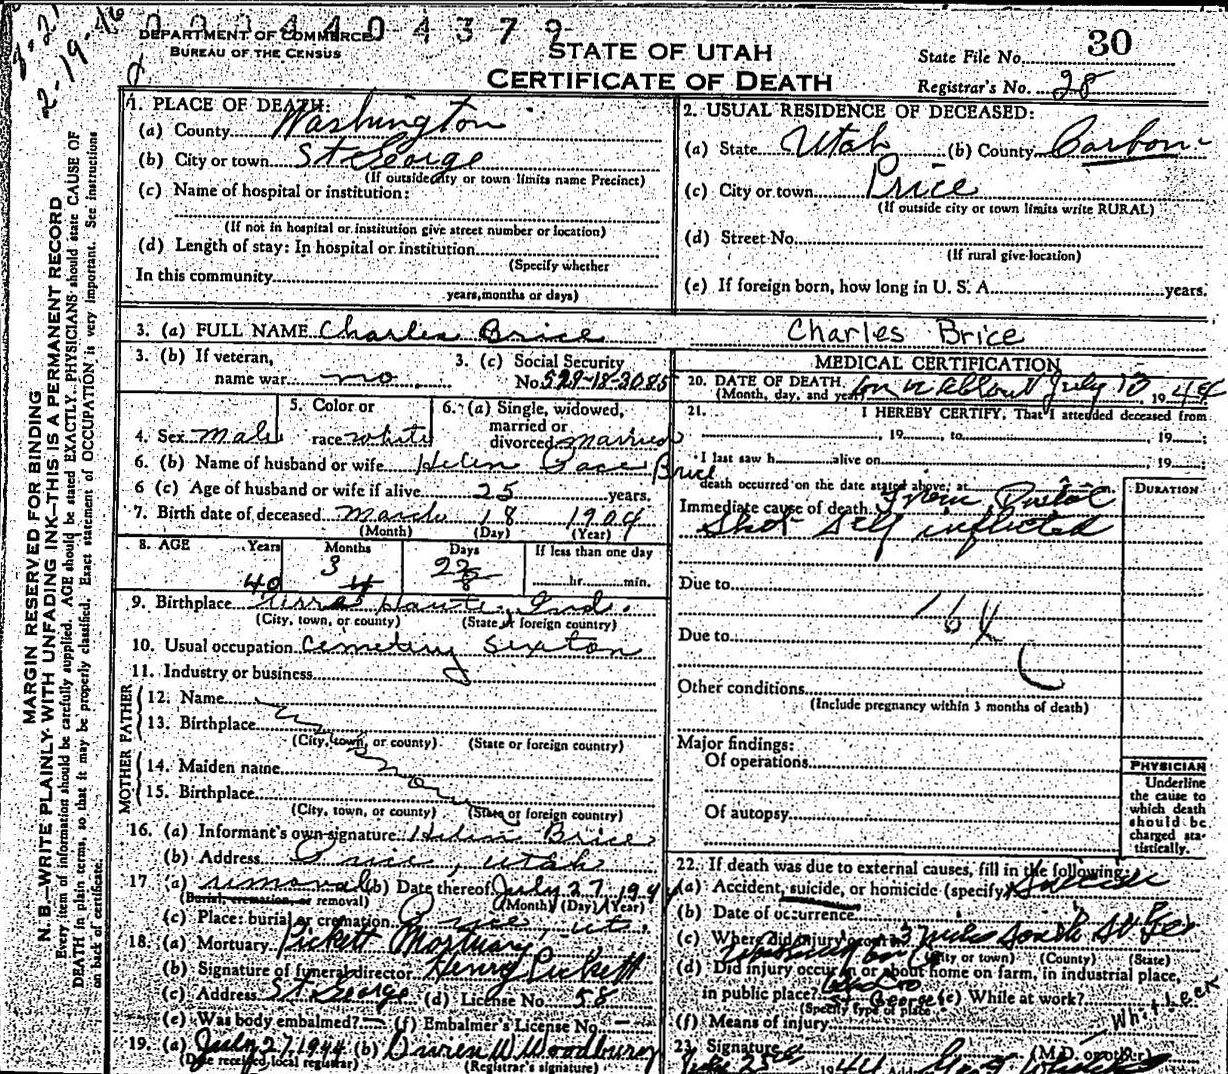 0 2 2 4 4 0 4 3 7 9
DEPARTMENT OF COMMERCE
BUREAU OF THE CENSUS
STATE OF UTAH
CERTIFICATE OF DEATH
State File No. 30
Registrar's No. 28
MARGIN RESERVED FOR BINDING
N. B.—WRITE PLAINLY WITH UNFADING INK—THIS IS A PERMANENT RECORD
Every item of information should be carefully supplied. AGE should be stated EXACTLY. PHYSICIANS should state CAUSE OF
DEATH in plain terms, so that it may be properly classified. Exact statement of OCCUPATION is very important. See instructions
on back of certificate.
1. PLACE OF DEATH:
(a) County Washington
(b) City or town St George
(If outside city or town limits name Precinct)
(c) Name of hospital or institution:
(If not in hospital or institution give street number or location)
(d) Length of stay: In hospital or institution
(Specify whether
In this community
years, months or days)
2. USUAL RESIDENCE OF DECEASED:
(a) State Utah (b) County Carbon
(c) City or town Price
(If outside city or town limits write RURAL)
(d) Street No.
(If rural give location)
(e) If foreign born, how long in U. S. A. years.
3. (a) FULL NAME Charles Brice Charles Brice
3. (b) If veteran,
name war no
3. (c) Social Security
No. 529-18-3085
4. Sex Male
5. Color or
race white
6. (a) Single, widowed,
married or
divorced married
6. (b) Name of husband or wife Helen Pace Brice
6 (c) Age of husband or wife if alive 25 years.
7. Birth date of deceased March 18 1904
(Month) (Day) (Year)
8. AGE Years Months Days If less than one day
40 3 4 22 hr. min.
9. Birthplace Terra Haute, Ind.
(City, town, or county) (State or foreign country)
10. Usual occupation Cemetery Sexton
11. Industry or business
FATHER
12. Name
13. Birthplace
(City, town, or county) (State or foreign country)
MOTHER
14. Maiden name
15. Birthplace
(City, town, or county) (State or foreign country)
16. (a) Informant's own signature Helen Brice
(b) Address Price, Utah
17 (a) removal (b) Date thereof July 27, 1944
(Burial, cremation, or removal) (Month) (Day) (Year)
(c) Place: burial or cremation Price, Ut.
18. (a) Mortuary Pickett Mortuary
(b) Signature of funeral director Henry Pickett
(c) Address St George (d) License No. 58
(e) Was body embalmed? — (f) Embalmer's License No. —
19. (a) July 27 1944 (b) Woodbury
(Date received local registrar) (Registrar's signature)
MEDICAL CERTIFICATION
20. DATE OF DEATH on or about July 10 1944
(Month, day, and year)
21. I HEREBY CERTIFY, That I attended deceased from
, 19 , to , 19 ;
I last saw h alive on , 19 ;
death occurred on the date stated above, at m.
Immediate cause of death From Pistol
Shot Self inflicted
DURATION
Due to
164
Due to
Other conditions
(Include pregnancy within 3 months of death)
Major findings:
Of operations
Of autopsy
PHYSICIAN
Underline
the cause to
which death
should be
charged sta-
tistically.
22. If death was due to external causes, fill in the following:
(a) Accident, suicide, or homicide (specify) Suicide
(b) Date of occurrence
(c) Where did injury occur? 3 miles South St Geo
(City or town) (County) (State)
(d) Did injury occur in or about home on farm, in industrial place,
in public place? St. George (e) While at work?
(Specify type of place)
(f) Means of injury
23. Signature (M.D. or other)